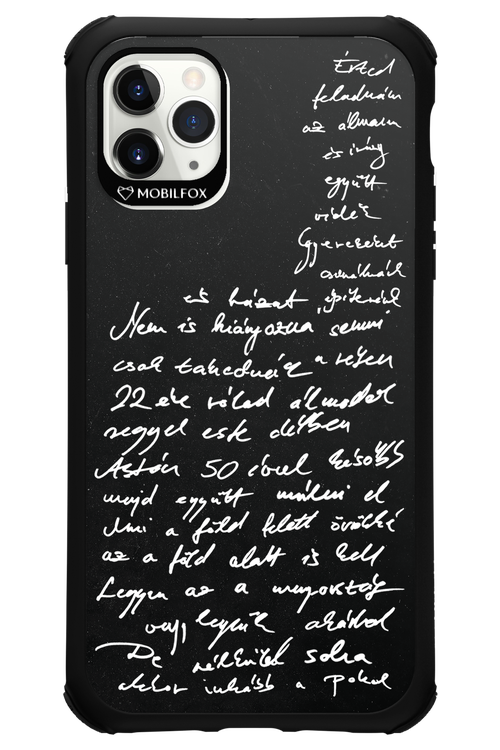 MOBILFOX
Érted
feladnám
az álmaim
és irány
együtt
vidék
Gyerekeket
csinálnánk
és házat építenénk
Nem is hiányozna semmi
csak takednéz a réten
22 éve rólad álmodok
reggel este délben
Aztán 50 évvel később
majd együtt múlni el
Ami a föld felett örökké
az a föld alatt is kell
Legyen az a mennyország
vagy legyünk akárhol
De nélküled soha
akkor inkább a Pokol